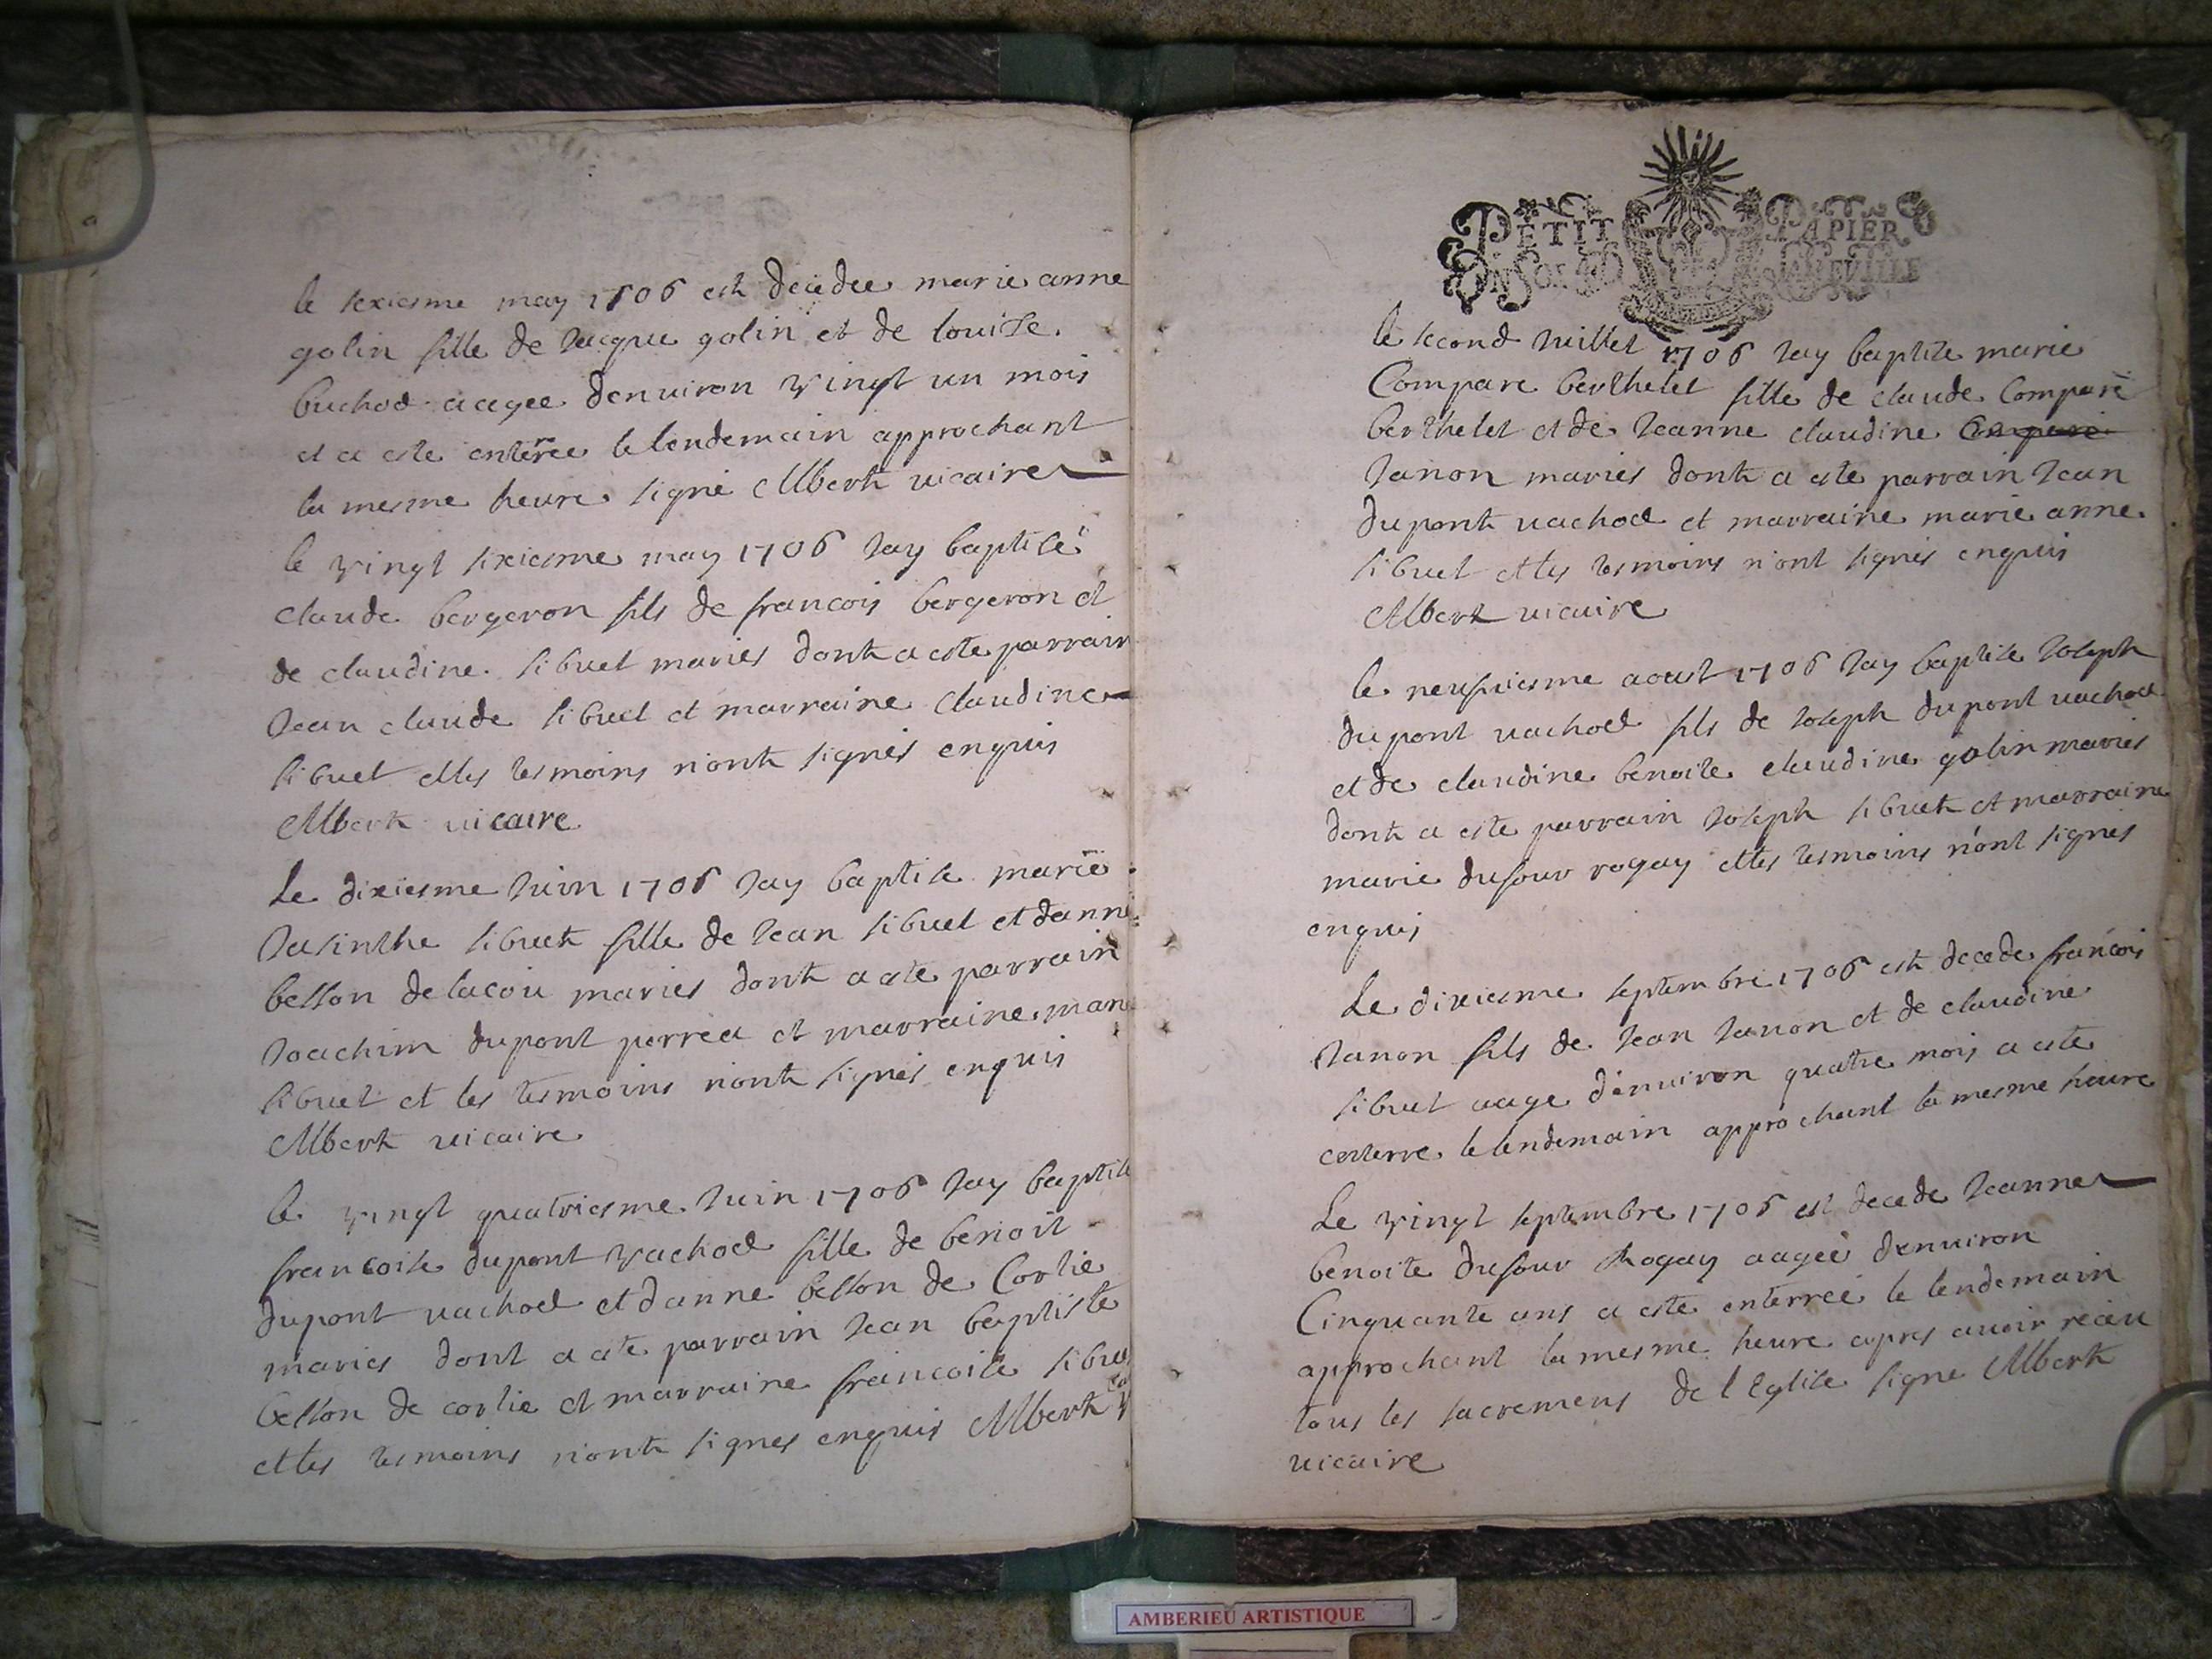 le sexiesme may 1706 est decedee marie anne
golin fille de Jacque golin et de louise
buchod aagee denuiron vingt un mois
et a este enterée le lendemain approchant
la mesme heure signé Albert uicaire
le vingt sixiesme may 1706 Jay baptisé
claude bergeron fils de francois bergeron et
de claudine sibuet mariés dont a este parrain
Jean claude sibuet et marraine claudine
sibuet et les tesmoins n'ont signés enquis
Albert uicaire
Le dixiesme Juin 1706 Jay baptise marie
Jasinthe sibuet fille de Jean sibuet et danne
besson delacou mariés dont a este parrain
Joachim dupont perrea et marraine
sibuet et les tesmoins n'ont signés enquis
Albert uicaire
le vingt quatriesme Juin 1706 Jay baptise
francoise dupont vachod fille de benoit
dupont uachod et danne besson de Corlie
maries dont a este parrain Jean baptiste
besson de corlie et marraine francoise sibuet
et les tesmoins n'ont signes enquis Albert
PETIT PAPIER
le second Juillet 1706 Jay baptise marie
Compare berthelet fille de claude Compare
berthelet et de Jeanne claudine Compare
Janon mariés dont a este parrain Jean
dupont uachod et marraine marie anne
sibuet et les tesmoins n'ont signés enquis
Albert uicaire
le neufuiesme aoust 1706 Jay baptise Joseph
dupont uachod fils de Joseph dupont uachod
et de claudine benoite claudine golin mariés
dont a este parrain Joseph sibuet et marraine
marie dufour rogay et les tesmoins n'ont signés
enquis
Le dixiesme septembre 1706 est decede francois
Janon fils de Jean Janon et de claudine
sibuet aage d'enuiron quatre mois a este
enterre le lendemain approchant la mesme heure
Le vingt septembre 1706 est decede Jeanne
benoite dufour Rogay aagée denuiron
Cinquante ans a este enterrée le lendemain
approchant la mesme heure apres auoir receu
tous les sacremens de l Eglise signe Albert
uicaire
AMBERIEU ARTISTIQUE